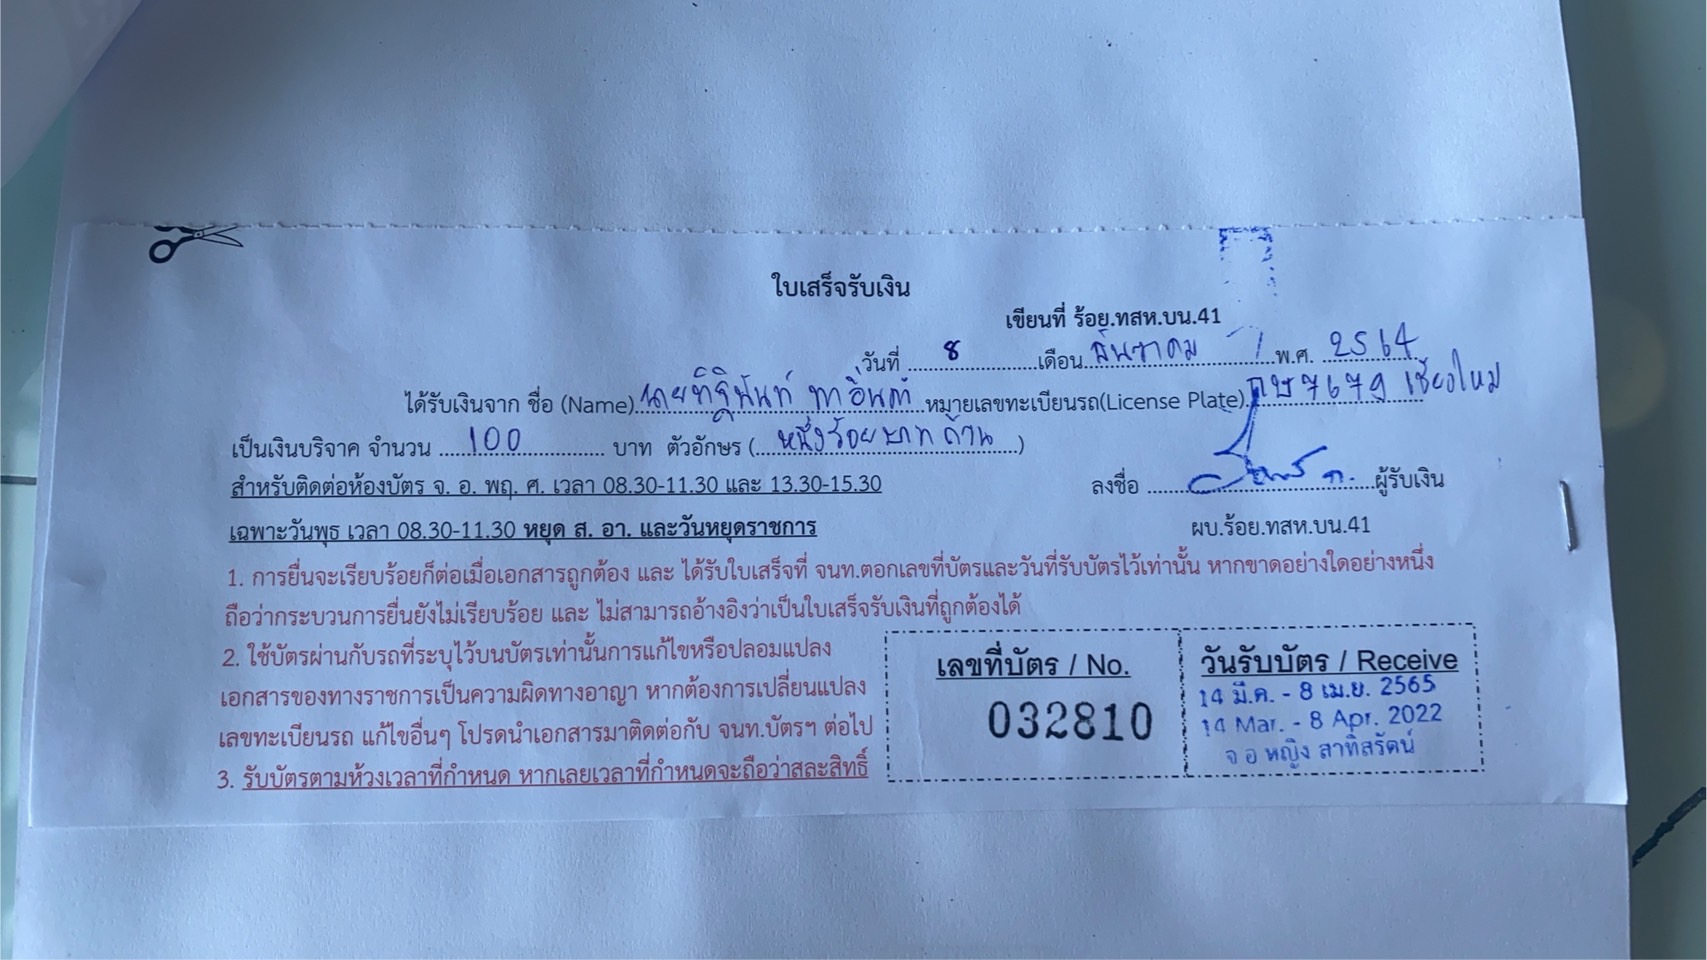 ใบเสร็จรับเงิน
เขียนที่ ร้อย.ทสห.บน.41
วันที่ 8 เดือน ธันวาคม พ.ศ. 2564
ได้รับเงินจาก ชื่อ (Name) นายทิฐินันท์ ทาอินต๊ะ หมายเลขทะเบียนรถ(License Plate) 7679 เชียงใหม่
เป็นเงินบริจาค จำนวน 100 บาท ตัวอักษร ( หนึ่งร้อยบาทถ้วน )
สำหรับติดต่อห้องบัตร จ. อ. พฤ. ศ. เวลา 08.30-11.30 และ 13.30-15.30
ลงชื่อ ผู้รับเงิน
เฉพาะวันพุธ เวลา 08.30-11.30 หยุด ส. อา. และวันหยุดราชการ
ผบ.ร้อย.ทสห.บน.41
1. การยื่นจะเรียบร้อยก็ต่อเมื่อเอกสารถูกต้อง และ ได้รับใบเสร็จที่ จนท.ตอกเลขที่บัตรและวันที่รับบัตรไว้เท่านั้น หากขาดอย่างใดอย่างหนึ่ง
ถือว่ากระบวนการยื่นยังไม่เรียบร้อย และ ไม่สามารถอ้างอิงว่าเป็นใบเสร็จรับเงินที่ถูกต้องได้
2. ใช้บัตรผ่านกับรถที่ระบุไว้บนบัตรเท่านั้นการแก้ไขหรือปลอมแปลง
เอกสารของทางราชการเป็นความผิดทางอาญา หากต้องการเปลี่ยนแปลง
เลขทะเบียนรถ แก้ไขอื่นๆ โปรดนำเอกสารมาติดต่อกับ จนท.บัตรฯ ต่อไป
3. รับบัตรตามห้วงเวลาที่กำหนด หากเลยเวลาที่กำหนดจะถือว่าสละสิทธิ์
เลขที่บัตร / No.
032810
วันรับบัตร / Receive
14 มี.ค. - 8 เม.ย. 2565
14 Mar. - 8 Apr. 2022
จ อ หญิง สาทิสรัตน์